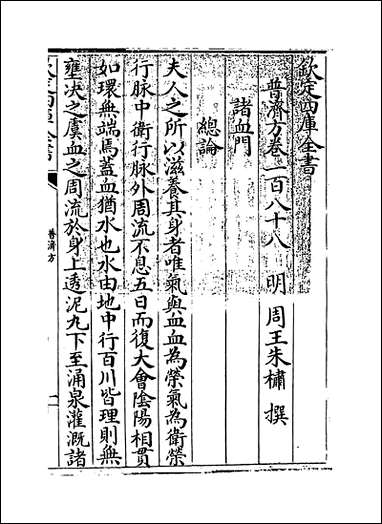 欽定四庫全書
普濟方卷一百八十八　明　周王朱橚　撰
諸血門
總論
夫人之所以滋養其身者唯氣與血血為榮氣為衛榮
行脉中衛行脉外周流不息五日而復大會陰陽相貫
如環無端焉蓋血猶水也水由地中行百川皆理則無
壅决之虞血之周流於身上透泥丸下至涌泉灌溉諸
普濟方